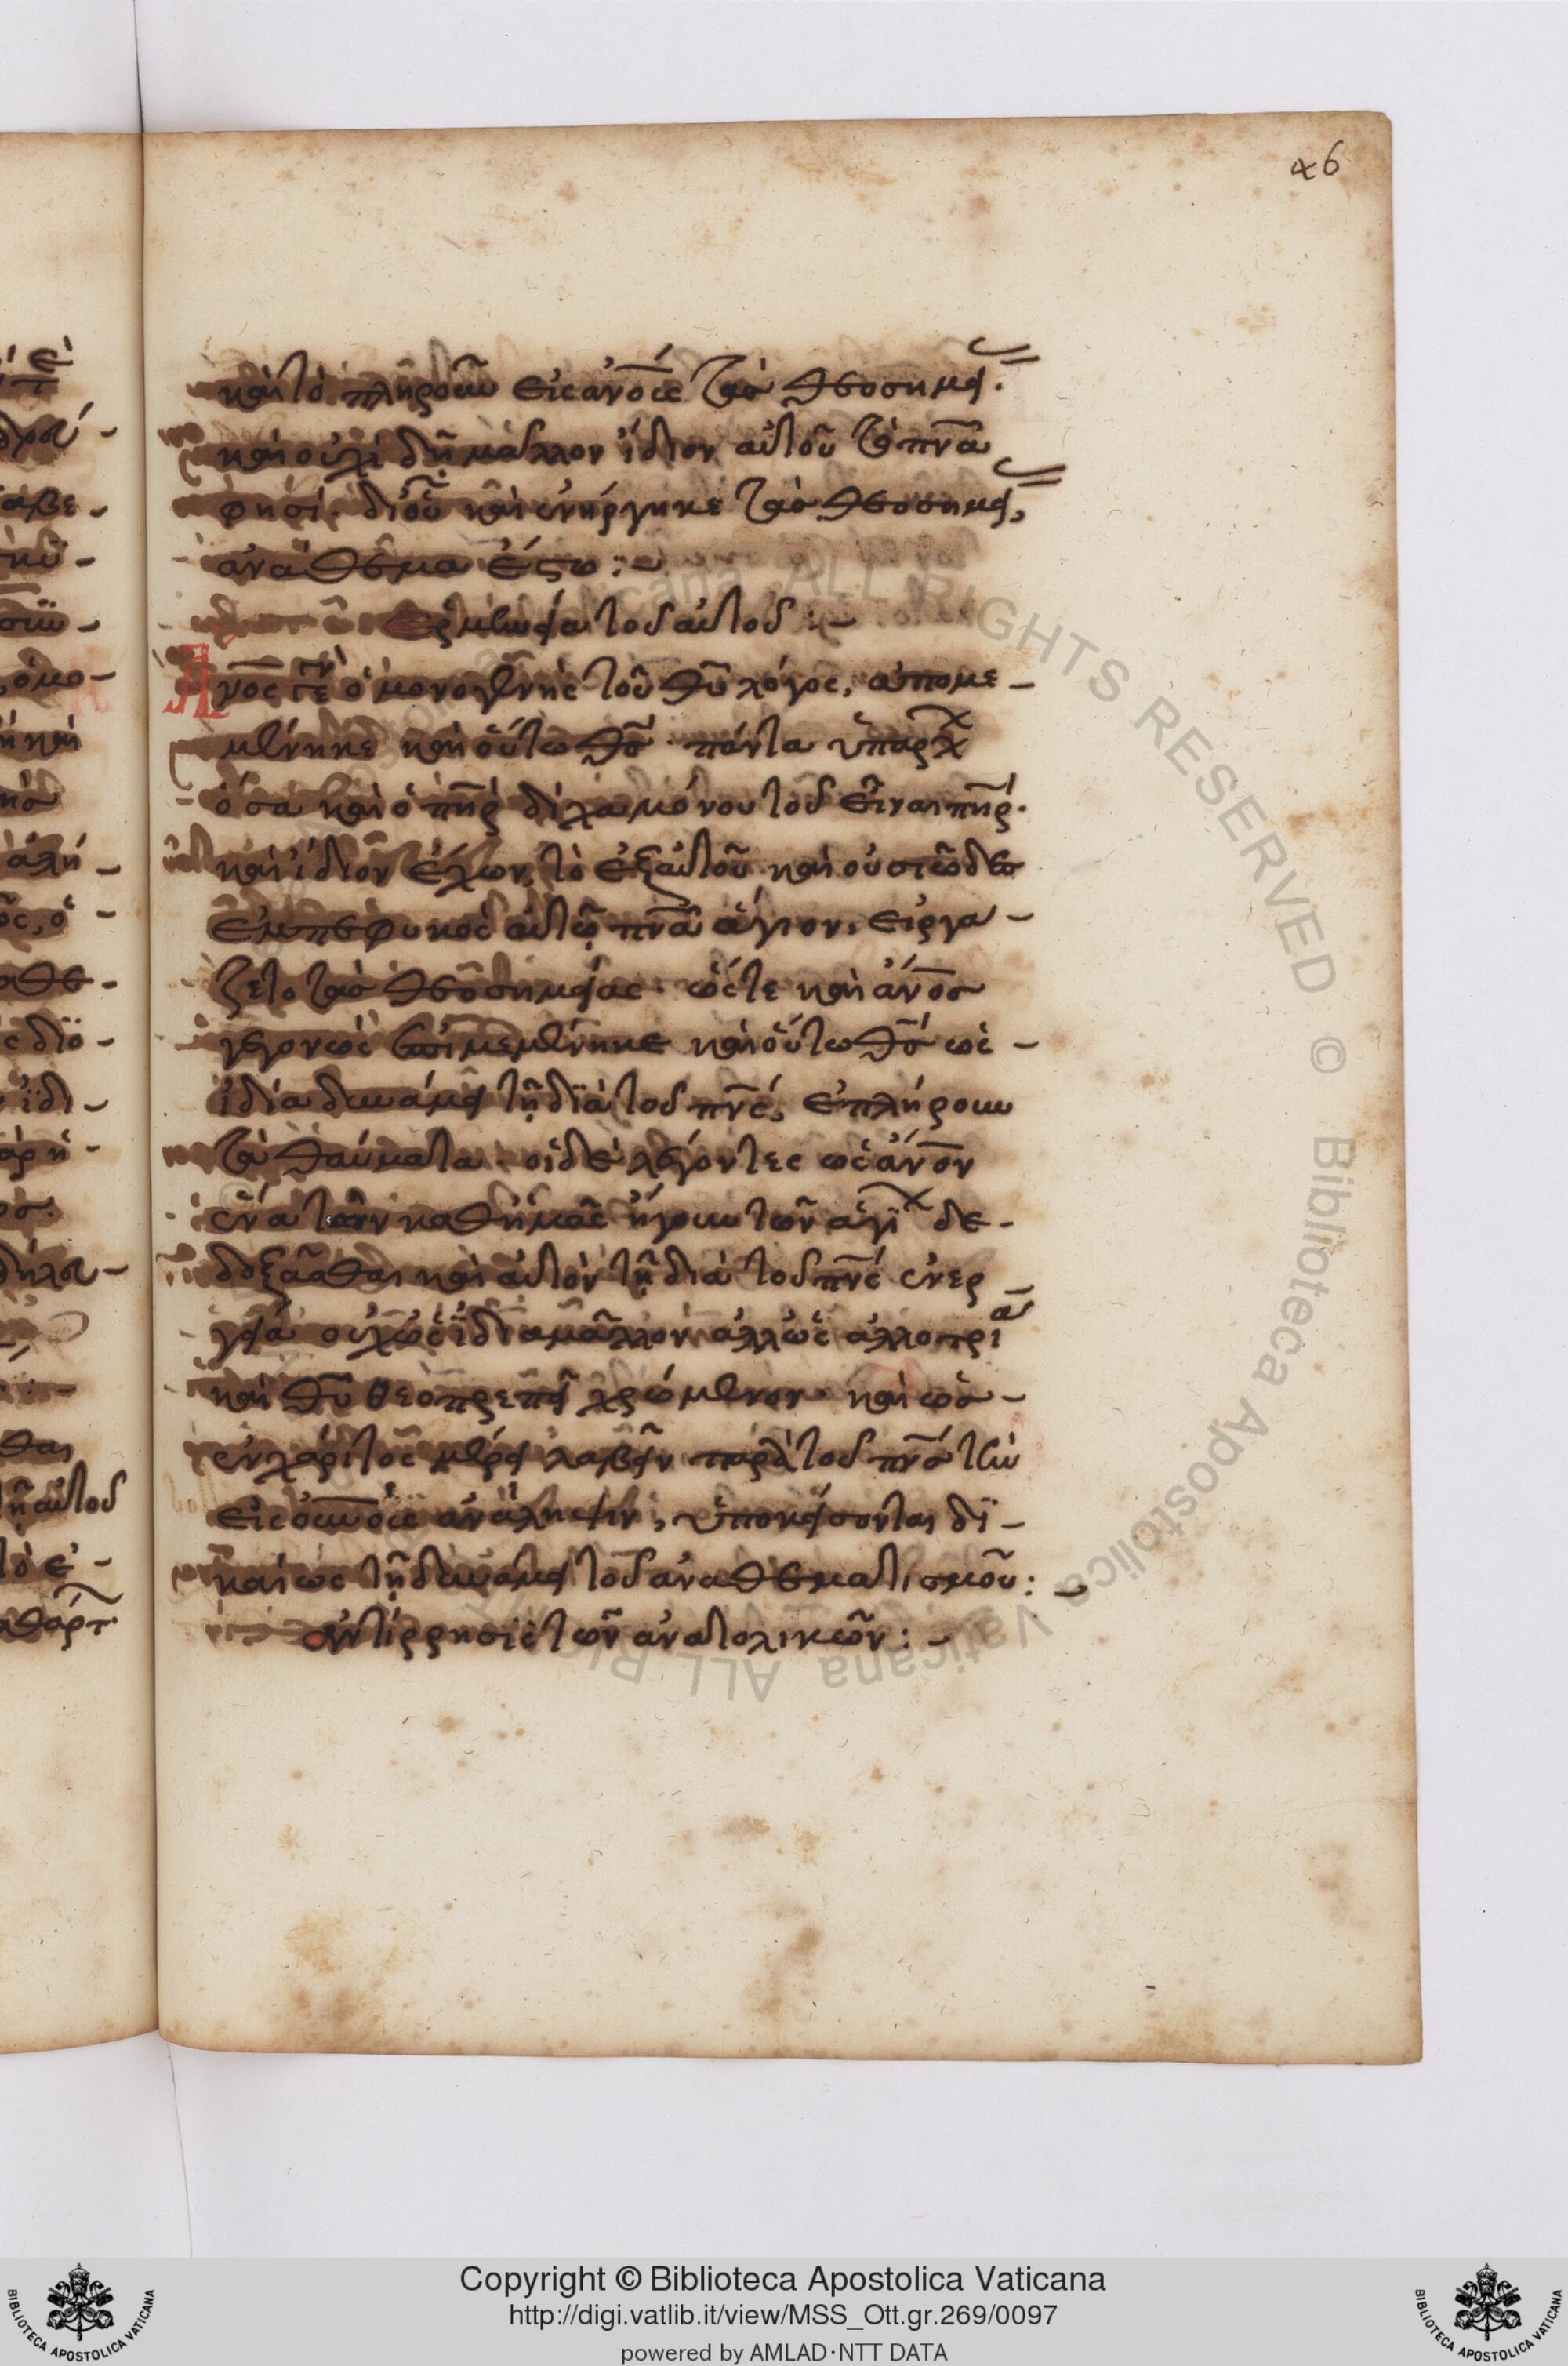 46
καὶ τὸ πληροῦν εἰς ἀνο̅ις τὰς θεοσημεί
καὶ οὐχὶ δὴ μᾶλλον ἴδιον αὐτοῦ τὸ πν̅α
φησί. δι' οὗ καὶ ἐνήργηκε τὰς θεοσημεί,
ἀνάθεμα ἔστω :~
Ἑρμηνεία τοῦ αὐτοῦ :~
Ἄνο̅ς γε ὁ μονογενὴς τοῦ θυ̅ λόγος, ἀπομε-
μένηκε καὶ οὕτω θσ̅ · πάντα ὑπάρχ
ὅσα καὶ ὁ πη̅ρ δίχα μόνου τοῦ εἶναι πη̅ρ.
καὶ ἴδιον ἔχων, τὸ ἐξ αὐτοῦ καὶ οὐσιωδῶς
ἐμπεφυκὸς αὐτῶ πν̅α ἅγιον, εἰργά-
ζετο τὰς θεοσημείας · ὥστε καὶ ἄνο̅σ
γεγονὼς ἐπιμεμένηκε καὶ οὕτω θσ̅ ὡς
ἰδία δυνάμει τῆ διὰ τοῦ πν̅ς, ἐπλήρουν
τὰ θαύματα · οἱ δὲ λέγοντες ὡς ἄνο̅ν
ἕνα τῶν καθ' ἡμᾶς ἤγουν τῶν ἁγί δε-
δοξᾶσθαι καὶ αὐτὸν τῆ διὰ τοῦ πν̅ς ἐνερ-
γεία οὐχ ὡς ἰδία μᾶλλον ἀλλ' ὡς ἀλλοτρία
καὶ θυ̅ θεοπρεπεῖ χρώμενον · καὶ ὡς-
ἐν χάριτος μέρει λαβεῖν παρὰ τοῦ πν̅ς τὴν
εἰς οὐνο̅ις ἀνάληψιν, ὑποκείσονται δι-
καίως τῆ δυνάμει τοῦ ἀναθεματισμοῦ :~
ἀντίρρησις τῶν ἀνατολικῶν :~
Copyright © Biblioteca Apostolica Vaticana
http://digi.vatlib.it/view/MSS_Ott.gr.269/0097
powered by AMLAD·NTT DATA